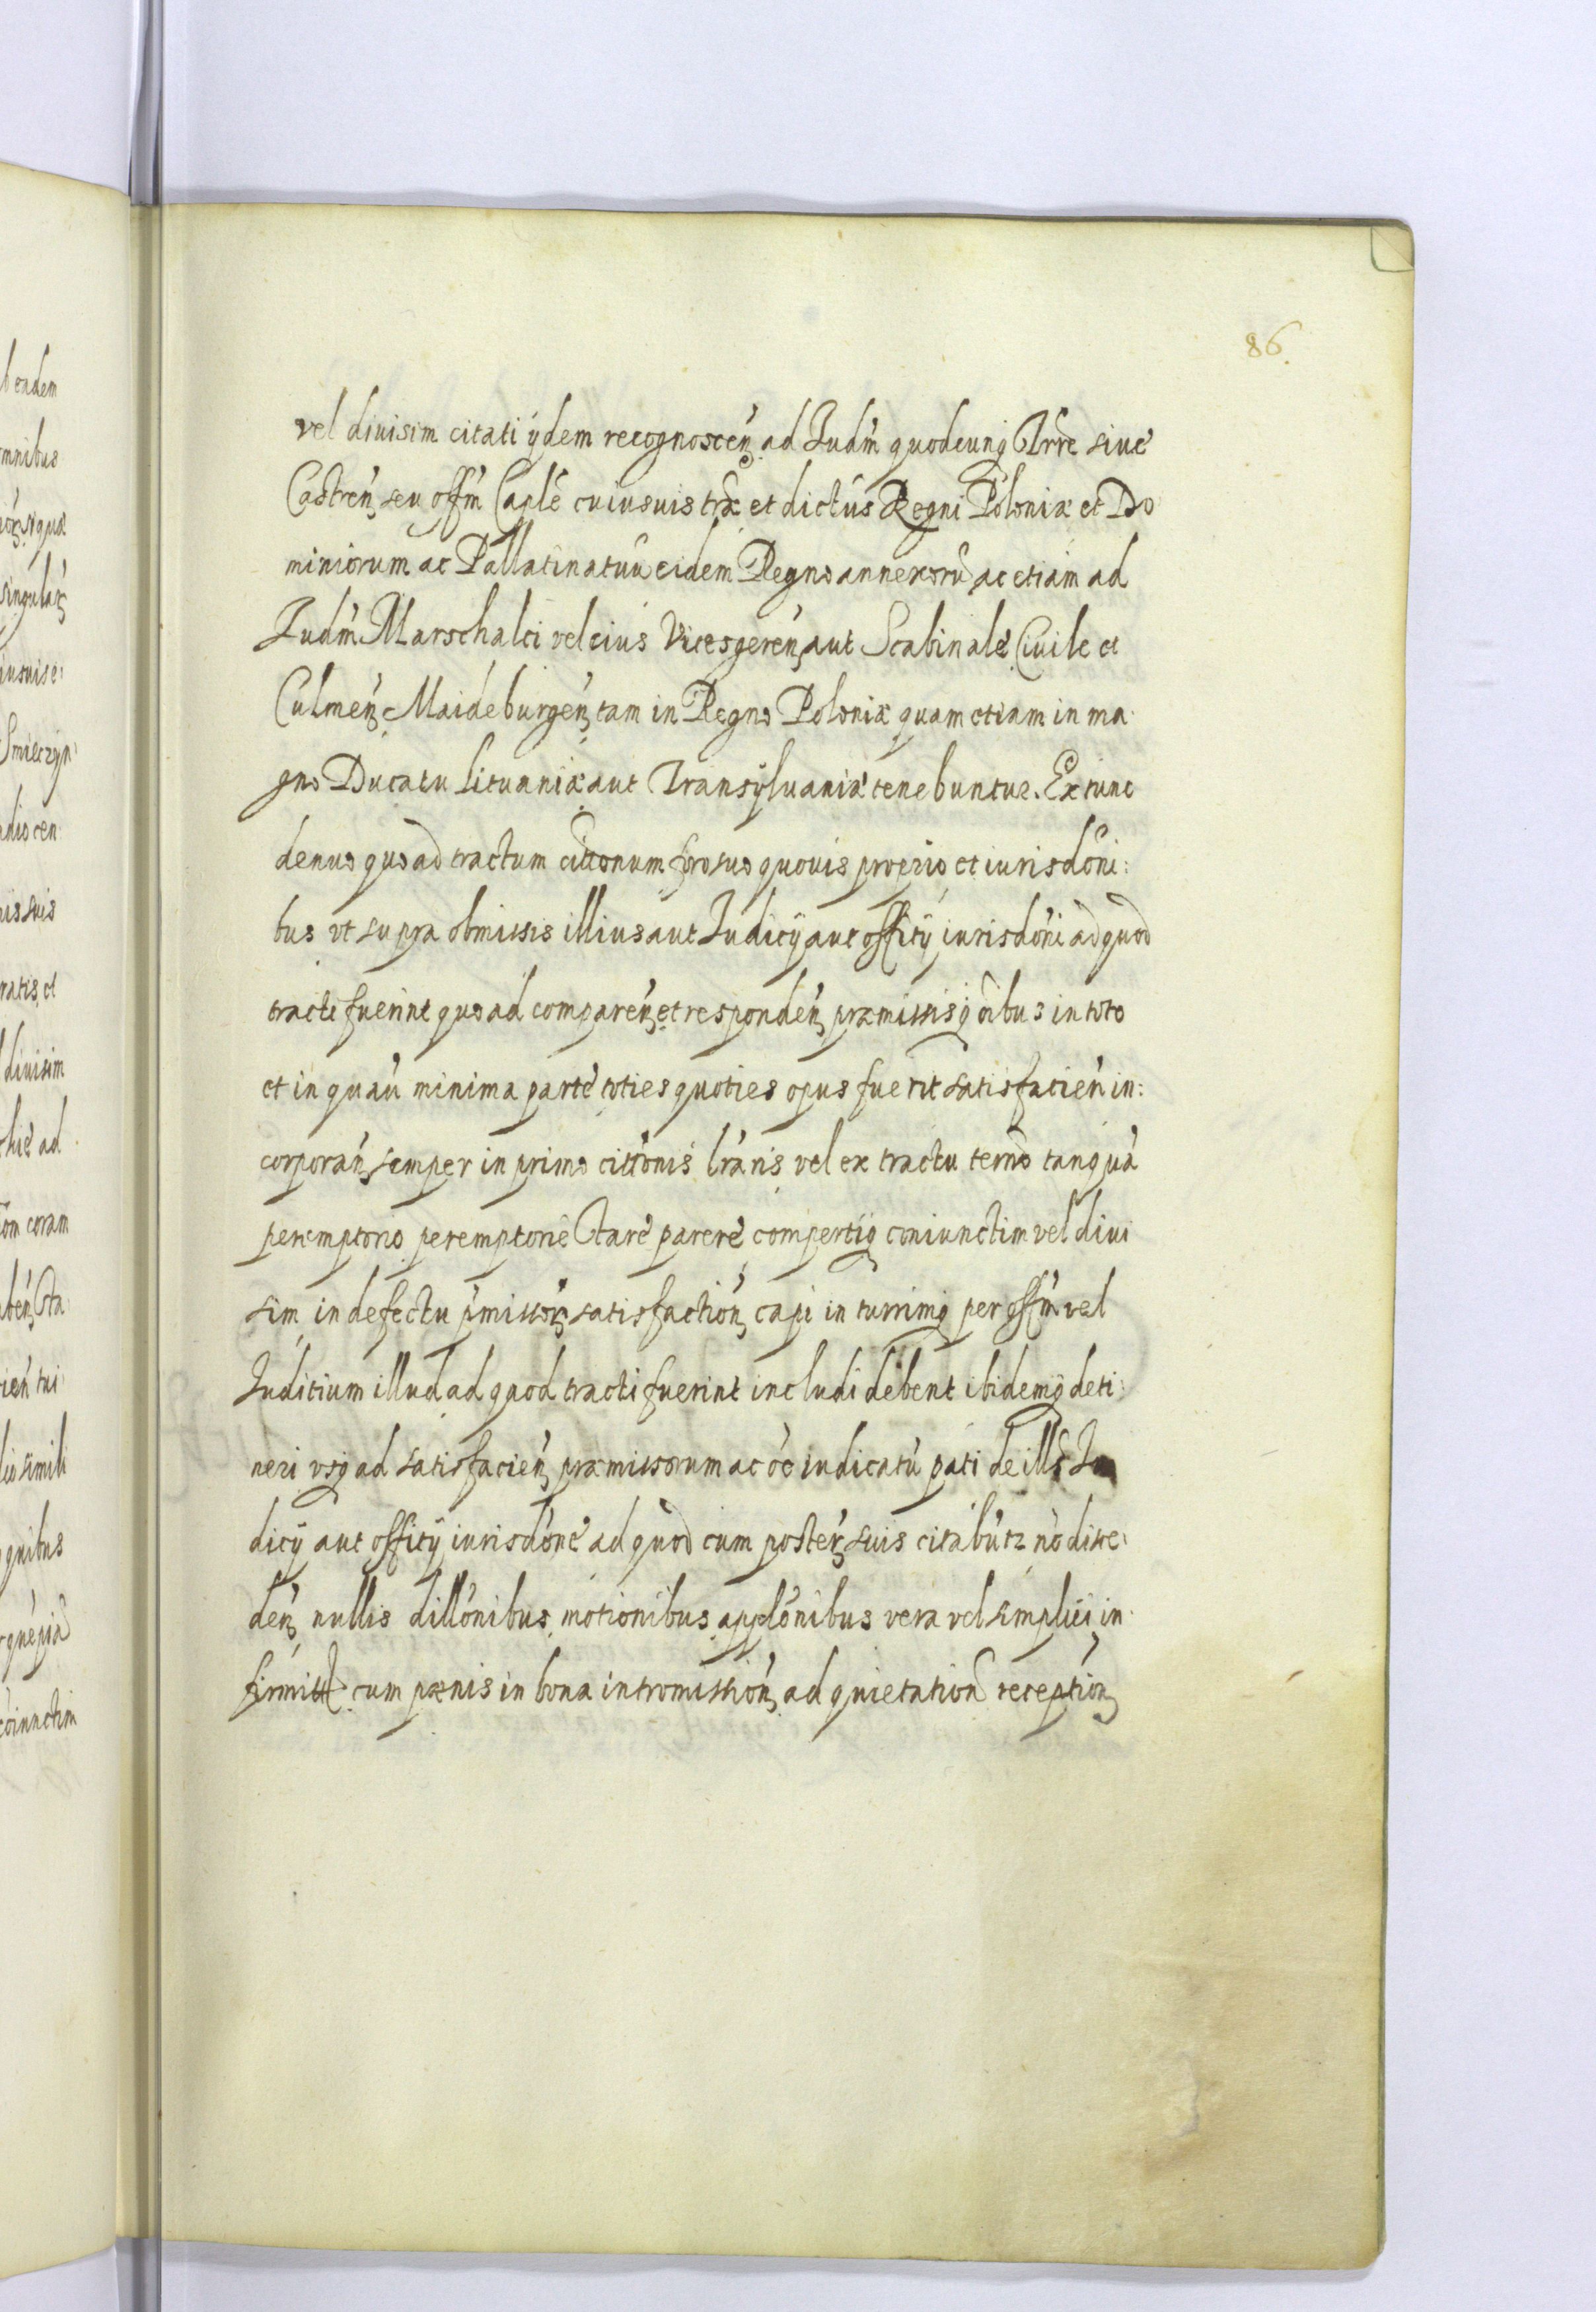 86.
vel diuisim citati ijdem recognoscen̄ ad Iudm̄ quodcunq̃ Trre siue
Castren̄ seu offm̄ Caple cuiusuis trae et dictus Regni Poloniæ et Do
miniorum ac Pallatinatuū eidem Regno annexorū ac etiam ad
Iudm̄ Marschalci vel eius Vicesgeren̄ aut Scabinale Ciuile et
Culmen̄ Maideburgen̄ tam in Regno Poloniæ quam etiam in ma
gno Ducatu Lituaniæ aut Transyluaniæ tenebuntur. Ex tunc
denuo quoad tractum cittonum foro suo quouis proprio et iurisdōni:
bus vt supra obmissis illius aut Iudicij aut officij iurisdōni ad quod
tracti fuerint quoad comparen̄ et responden̄ præmissisq̃ oībus in toto
et in quaū minima parte toties quoties opus fuerit satisfacien̄ in:
corporan̄ semper in primo cittonis lraris vel ex tractu termo tanquā
peremptorio peremptorie stare parere compertiq̃ coniunctim vel diui
sim in defectu pmissor̄ satisfaction̄ capi in turrimq̃ per offm̄ vel
Iuditium illud ad quod tracti fuerint includi debent ibidemq̃ deti:
neri vsq̃ ad satisfacien̄ præmissorum ac oē iudicatū pati de illis Iu
dicij aut officij iurisdōne ad quod cum poster̄ suis citabūtz nō disce:
den̄ nullis dillōnibus motionibus applōnibus vera vel simplici in
firmitte cum pænis in bona intromission̄ ad quietation̄ reception̄